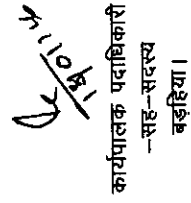 कार्यपालक पदाधिकारी
–सह–सदस्य
बड़हिया।